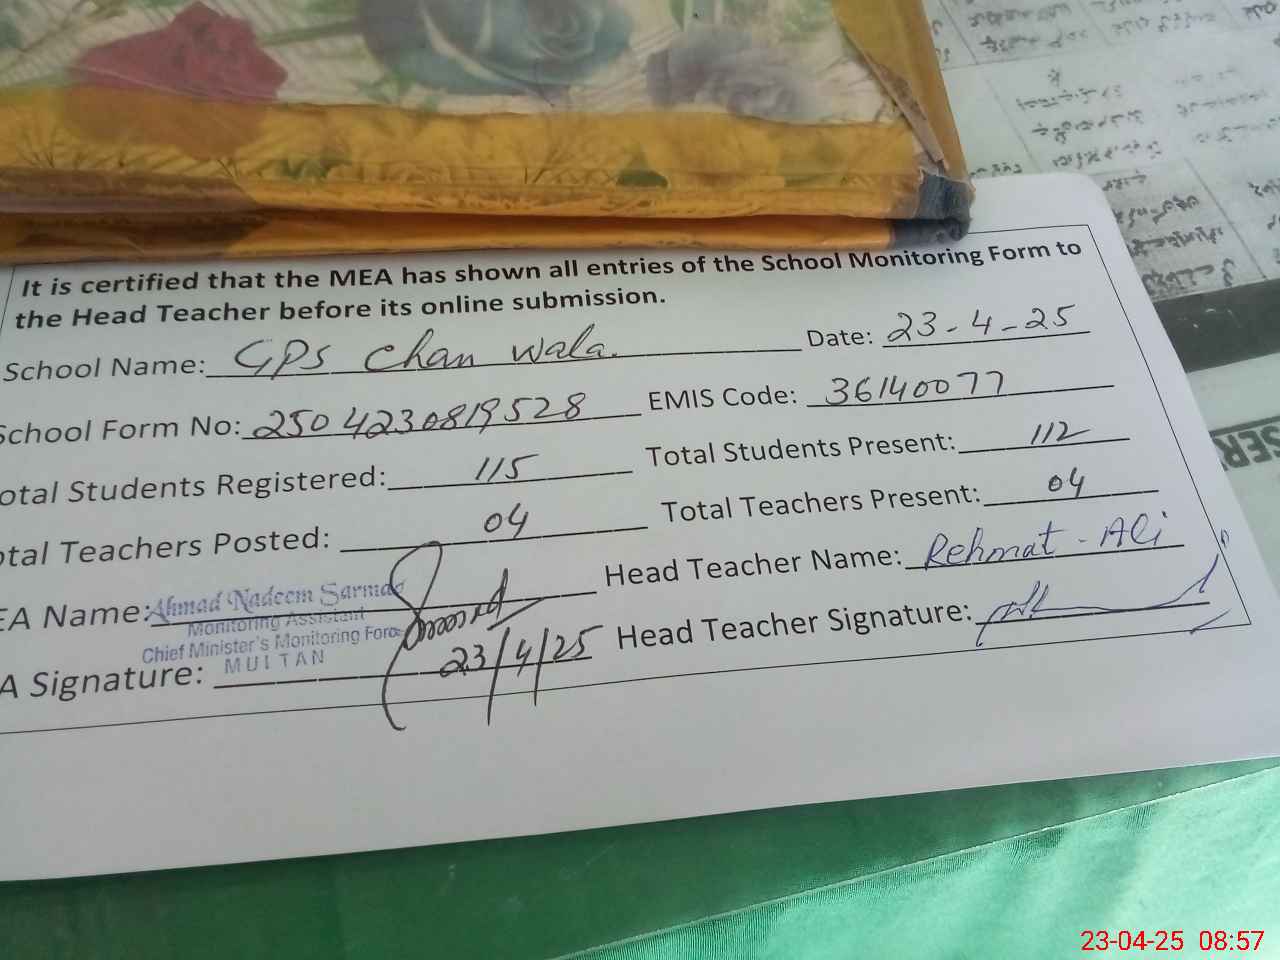 It is certified that the MEA has shown all entries of the School Monitoring Form to
the Head Teacher before its online submission.
School Name: GPS Chan wala. Date: 23-4-25
School Form No: 2504230819528 EMIS Code: 36140077
otal Students Registered: 115 Total Students Present: 112
otal Teachers Posted: 04 Total Teachers Present: 04
EA Name: Ahmad Nadeem Sarmad Head Teacher Name: Rehmat - Ali
Monitoring Assistant
Chief Minister's Monitoring Force
MULTAN
A Signature: 23/4/25 Head Teacher Signature:
SER
23-04-25 08:57